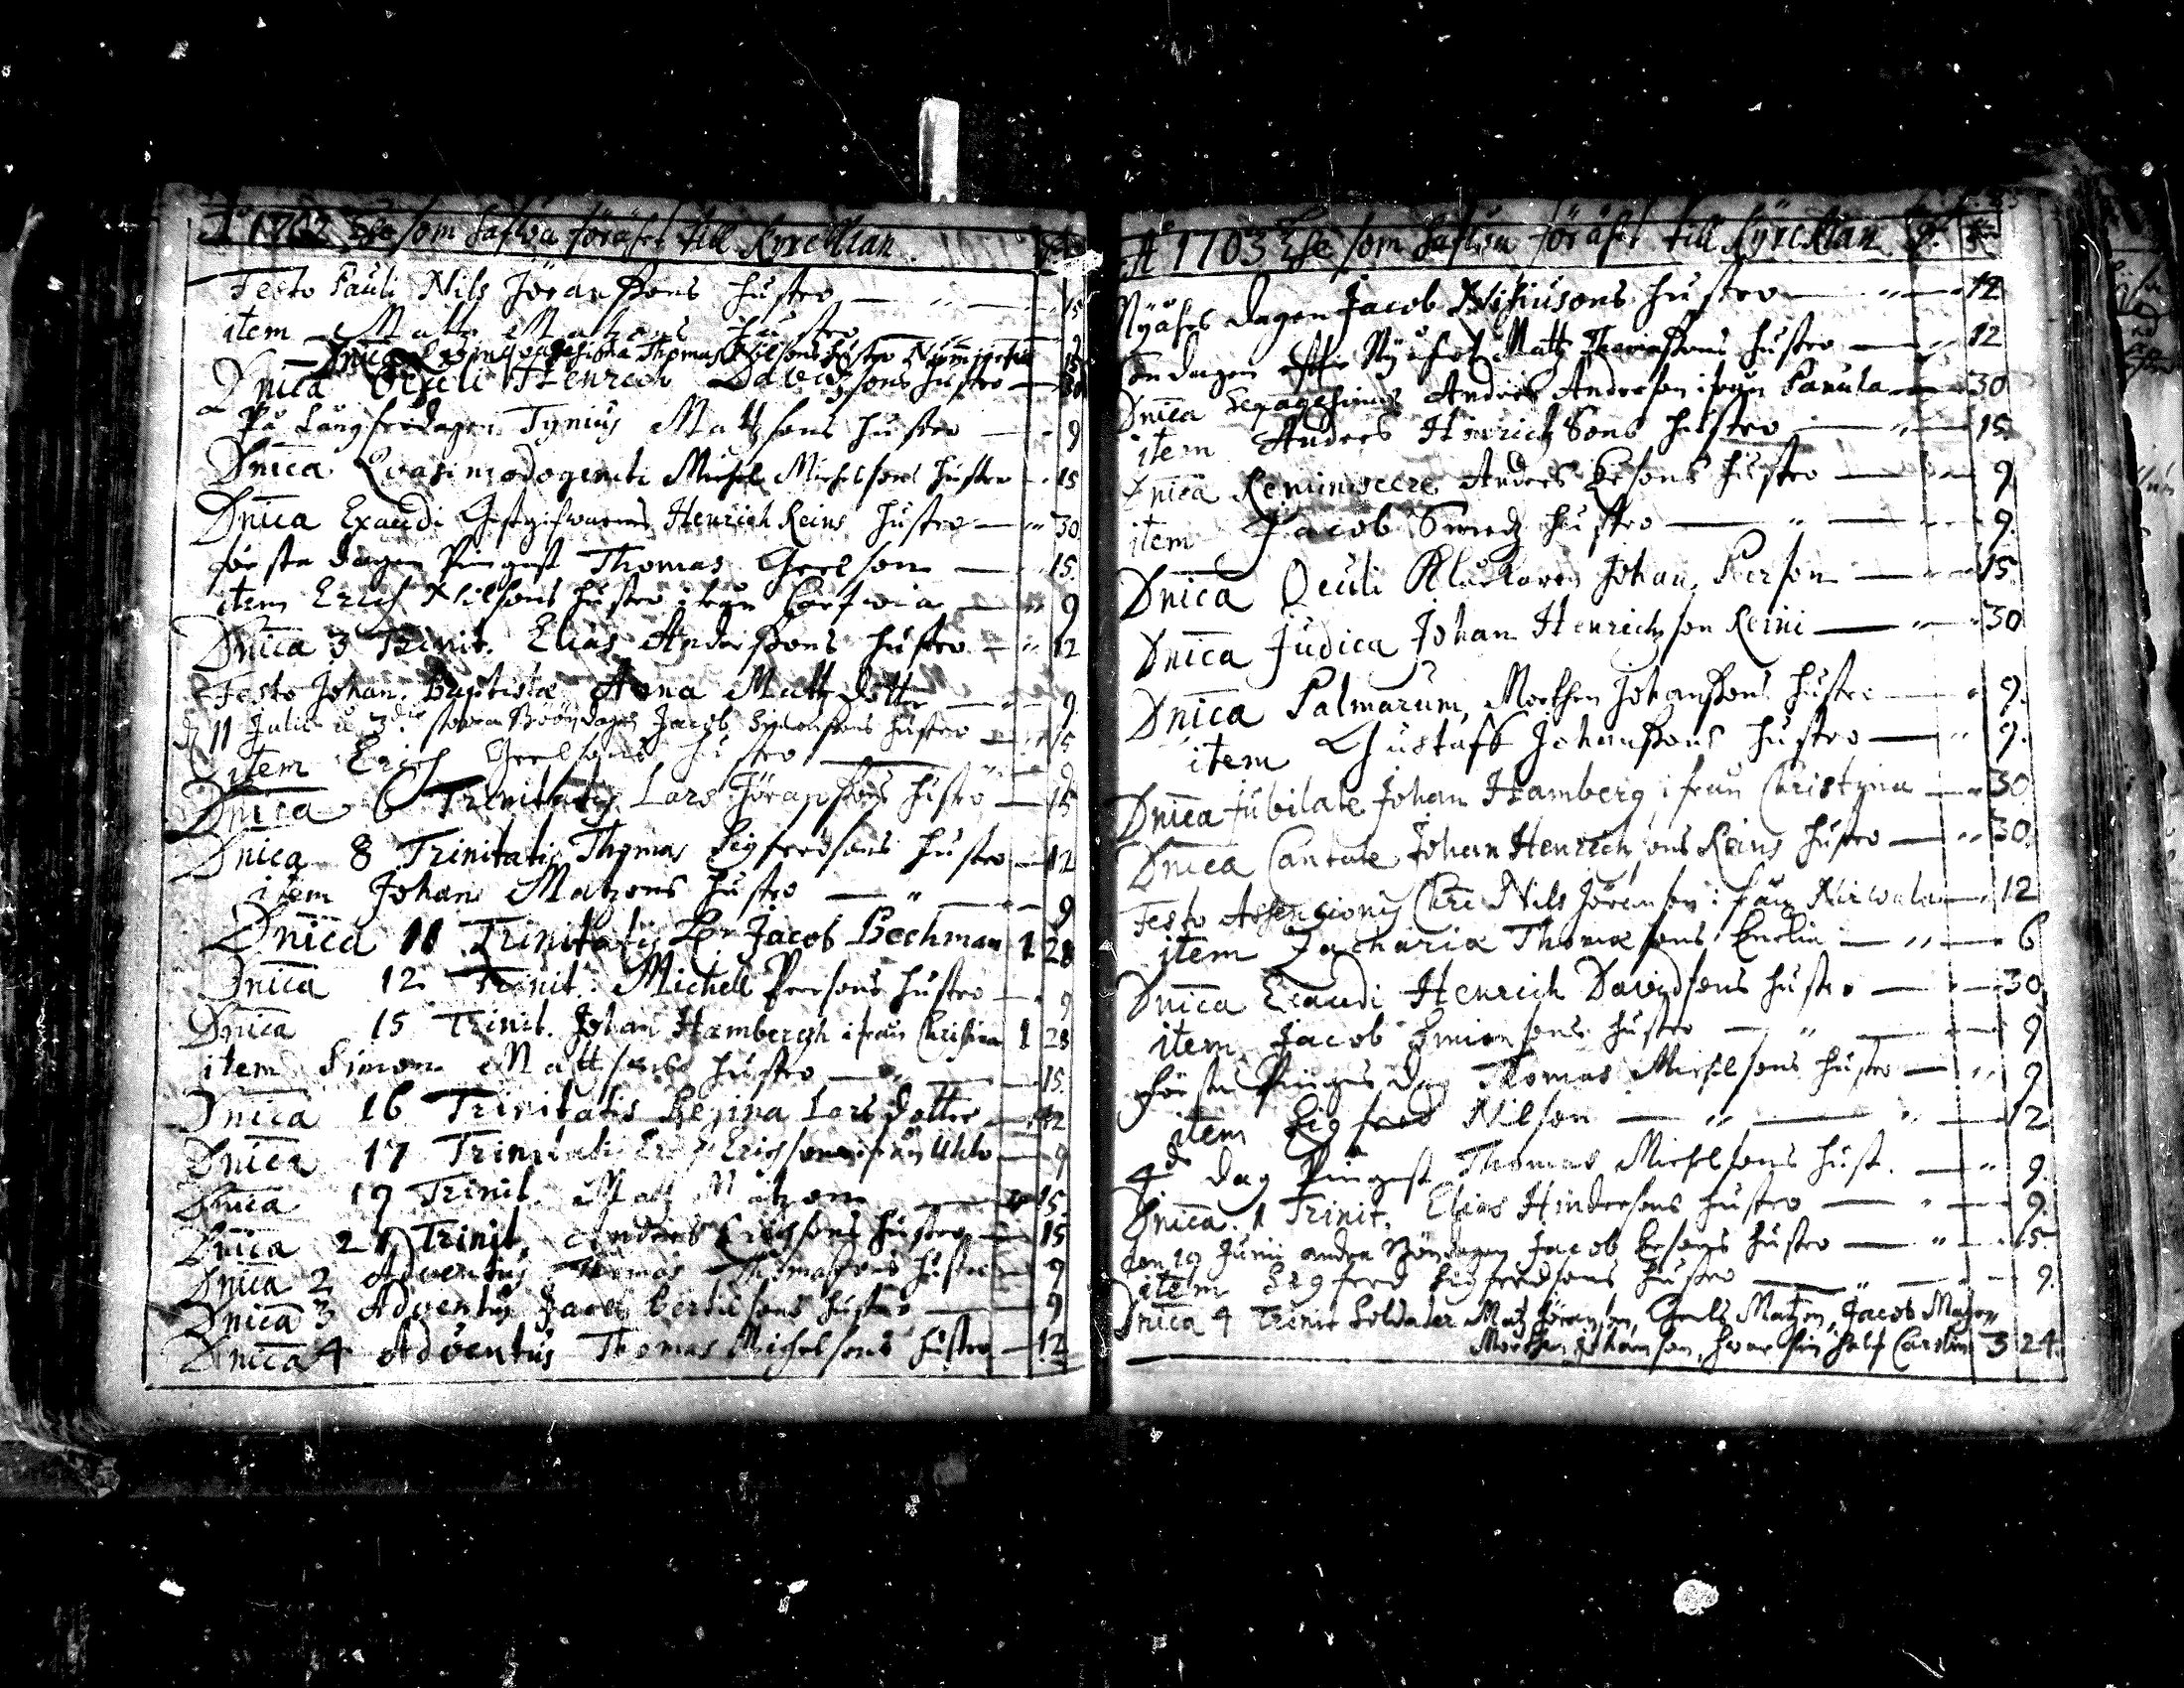 A:o 1702 The som hafwa förährt till Kyrckian
Festo Pauli Nils Jöranßons hustro — 15
item Matts Matzons hustro — 9
Dnica Quinquagesima Thomas Nilsons hustro 15
Dnica Oculi Henrich Davidzsons hustro — 30
På Långfredagen Tynius Mattzsons hustro — 9
Dnica Qvasimodogeniti Michel Michelsons hustro — 15
Dnica Exaudi Henrich Reins hustro — 30
första dagen Pingest Thomas Geelson — 15.
item Erich Nilsons hustro — 9
Dnica 3 Trinit. Elias Anderßons hustro — 12
Festo Johan. Baptistæ Anna Mattz dotter — 9.
d. 11 Julii Böndagen Jacob hustro — 15
item Erich Geelsons hustro — 9
Dnica 6 Trinitatis Lars Jöranßons hustro — 15
Dnica 8 Trinitatis Thomas Sigfredsons hustro — 12
item Johan Matzons hustro — 9
Dnica 11 Trinitatis Hr Jacob Bechman 1 28
Dnica 12 Trinit: Michell Peersons hustro — 9
Dnica 15 Trinit. Johan Hambergh ifrån Christina 1 28
item Simon Mattsons hustro — 15.
Dnica 16 Trinitatis Regina Lars dotter — 12
Dnica 17 Trinitatis Erich Erichson ifrån — 9
Dnica 19 Trinit. Matz Matzon — 15.
Dnica 21 Trinit. Anders Erichsons hustro — 15
Dnica 2 Adventus Thomas Thomasons hustro — 9
Dnica 3 Adventus Jacob Bertilsons hustro — 9
Dnica 4 Adventus Thomas Michelsons hustro — 12
A:o 1703 The som hafwa förährt till Kyrckian
Nyåhrs dagen Jacob hustro — 12
Söndagen effter Nyåhret Mattz Thomaßons hustro — 12
Dnica Sexagesima Anders Anderson Panula — 30
item Anders Hinrichsons hustro — 15.
Dnica Reminiscere Anders hustro — 9
item Jacob Smedz hustro — 9.
Dnica Oculi Klockaren Johan Peerson — 15.
Dnica Judica Johan Henrichson Reini — 30
Dnica Palmarum, Morthen Johanßons hustro — 9.
item Gustaff Johanßons hustro — 9.
Dnica Jubilate Johan Hamberg ifrån Christina — 30
Dnica Cantate Johan Henrichsons Reins hustro — 30.
Festo Ascensionis Chri Nils Jöranson ifrån — 12
item Zacharias Thomæsons — 6
Dnica Exaudi Henrich Davidsons hustro — 30
item Jacob Simonsons hustro — 9
första Pingesdag Thomas Michelsons hustro — 9
item Sigfred Nilson — 12
4de dag Pingest Thomas Michelsons hust. — 9.
Dnica. 1 Trinit. Elias Hindersons hustro — 9.
den 19 Junii andra Böndagen Jacob hustro — 15.
item Sigfred Sigfredsons hustro — 9.
Dnica 4 Trinit Soldater Matz Jöranson, Geels Matzon, Jacob Matzon
Morthen Johanson, hwarthin half Carolin 3 24.